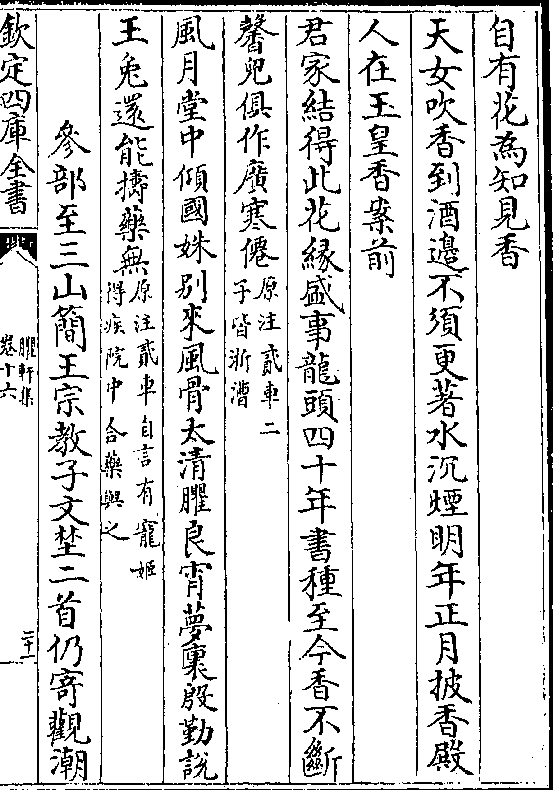 自有花為知見香
天女吹香到酒邊不須更著水沉煙明年正月披香殿
人在玉皇香案前
君家結得此花緣盛事龍頭四十年書種至今香不斷
馨兒俱作廣寒僊原注貳車二
子皆浙漕
風月堂中傾國姝别來風骨太清臞良宵夢裏殷勤說
王兔還能擣藥無原注貳車自言有寵姬
得疾院中合藥與之
參部至三山簡王宗教子文埜二首仍寄觀潮
欽定四庫全書
臞軒集
卷十六
二十一